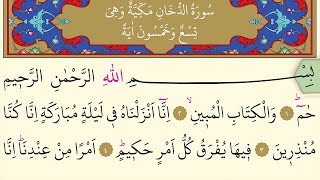 سُورَةُ الدُّخَانِ مَكِّيَّةٌ وَهِيَ
تِسْعٌ وَخَمْسُونَ اٰيَةً
بِسْــــمِ اللّٰهِ الرَّحْمٰنِ الرَّحٖيمِ
حٰمٓ ۜ ﴿١﴾ وَالْكِتَابِ الْمُبٖينِ ۙ ﴿٢﴾ اِنَّٓا اَنْزَلْنَاهُ فٖي لَيْلَةٍ مُبَارَكَةٍ اِنَّا كُنَّا
مُنْذِرٖينَ ﴿٣﴾ فٖيهَا يُفْرَقُ كُلُّ اَمْرٍ حَكٖيمٍ ۙ ﴿٤﴾ اَمْرًا مِنْ عِنْدِنَا ۜ اِنَّا